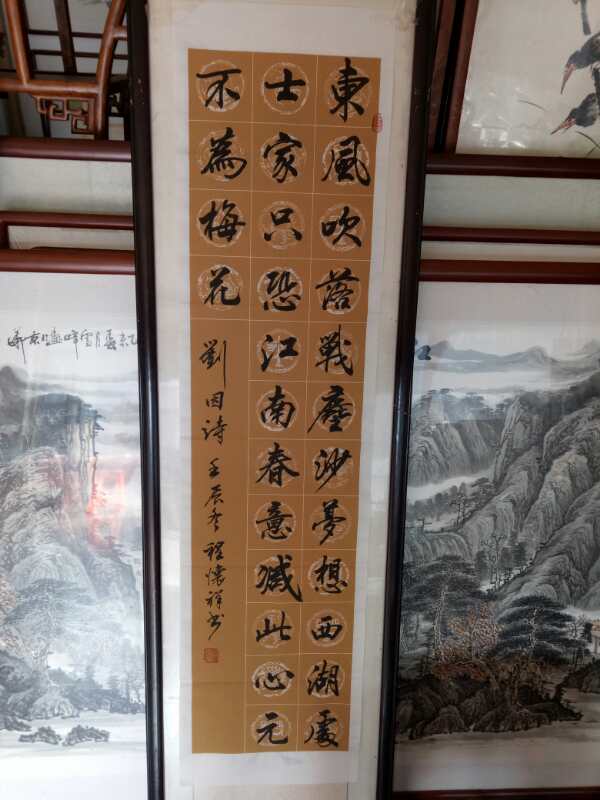 東風吹落戰塵沙夢想西湖處
士家只恐江南春意减此心元
不為梅花
劉因詩 壬辰冬 程懷祥书